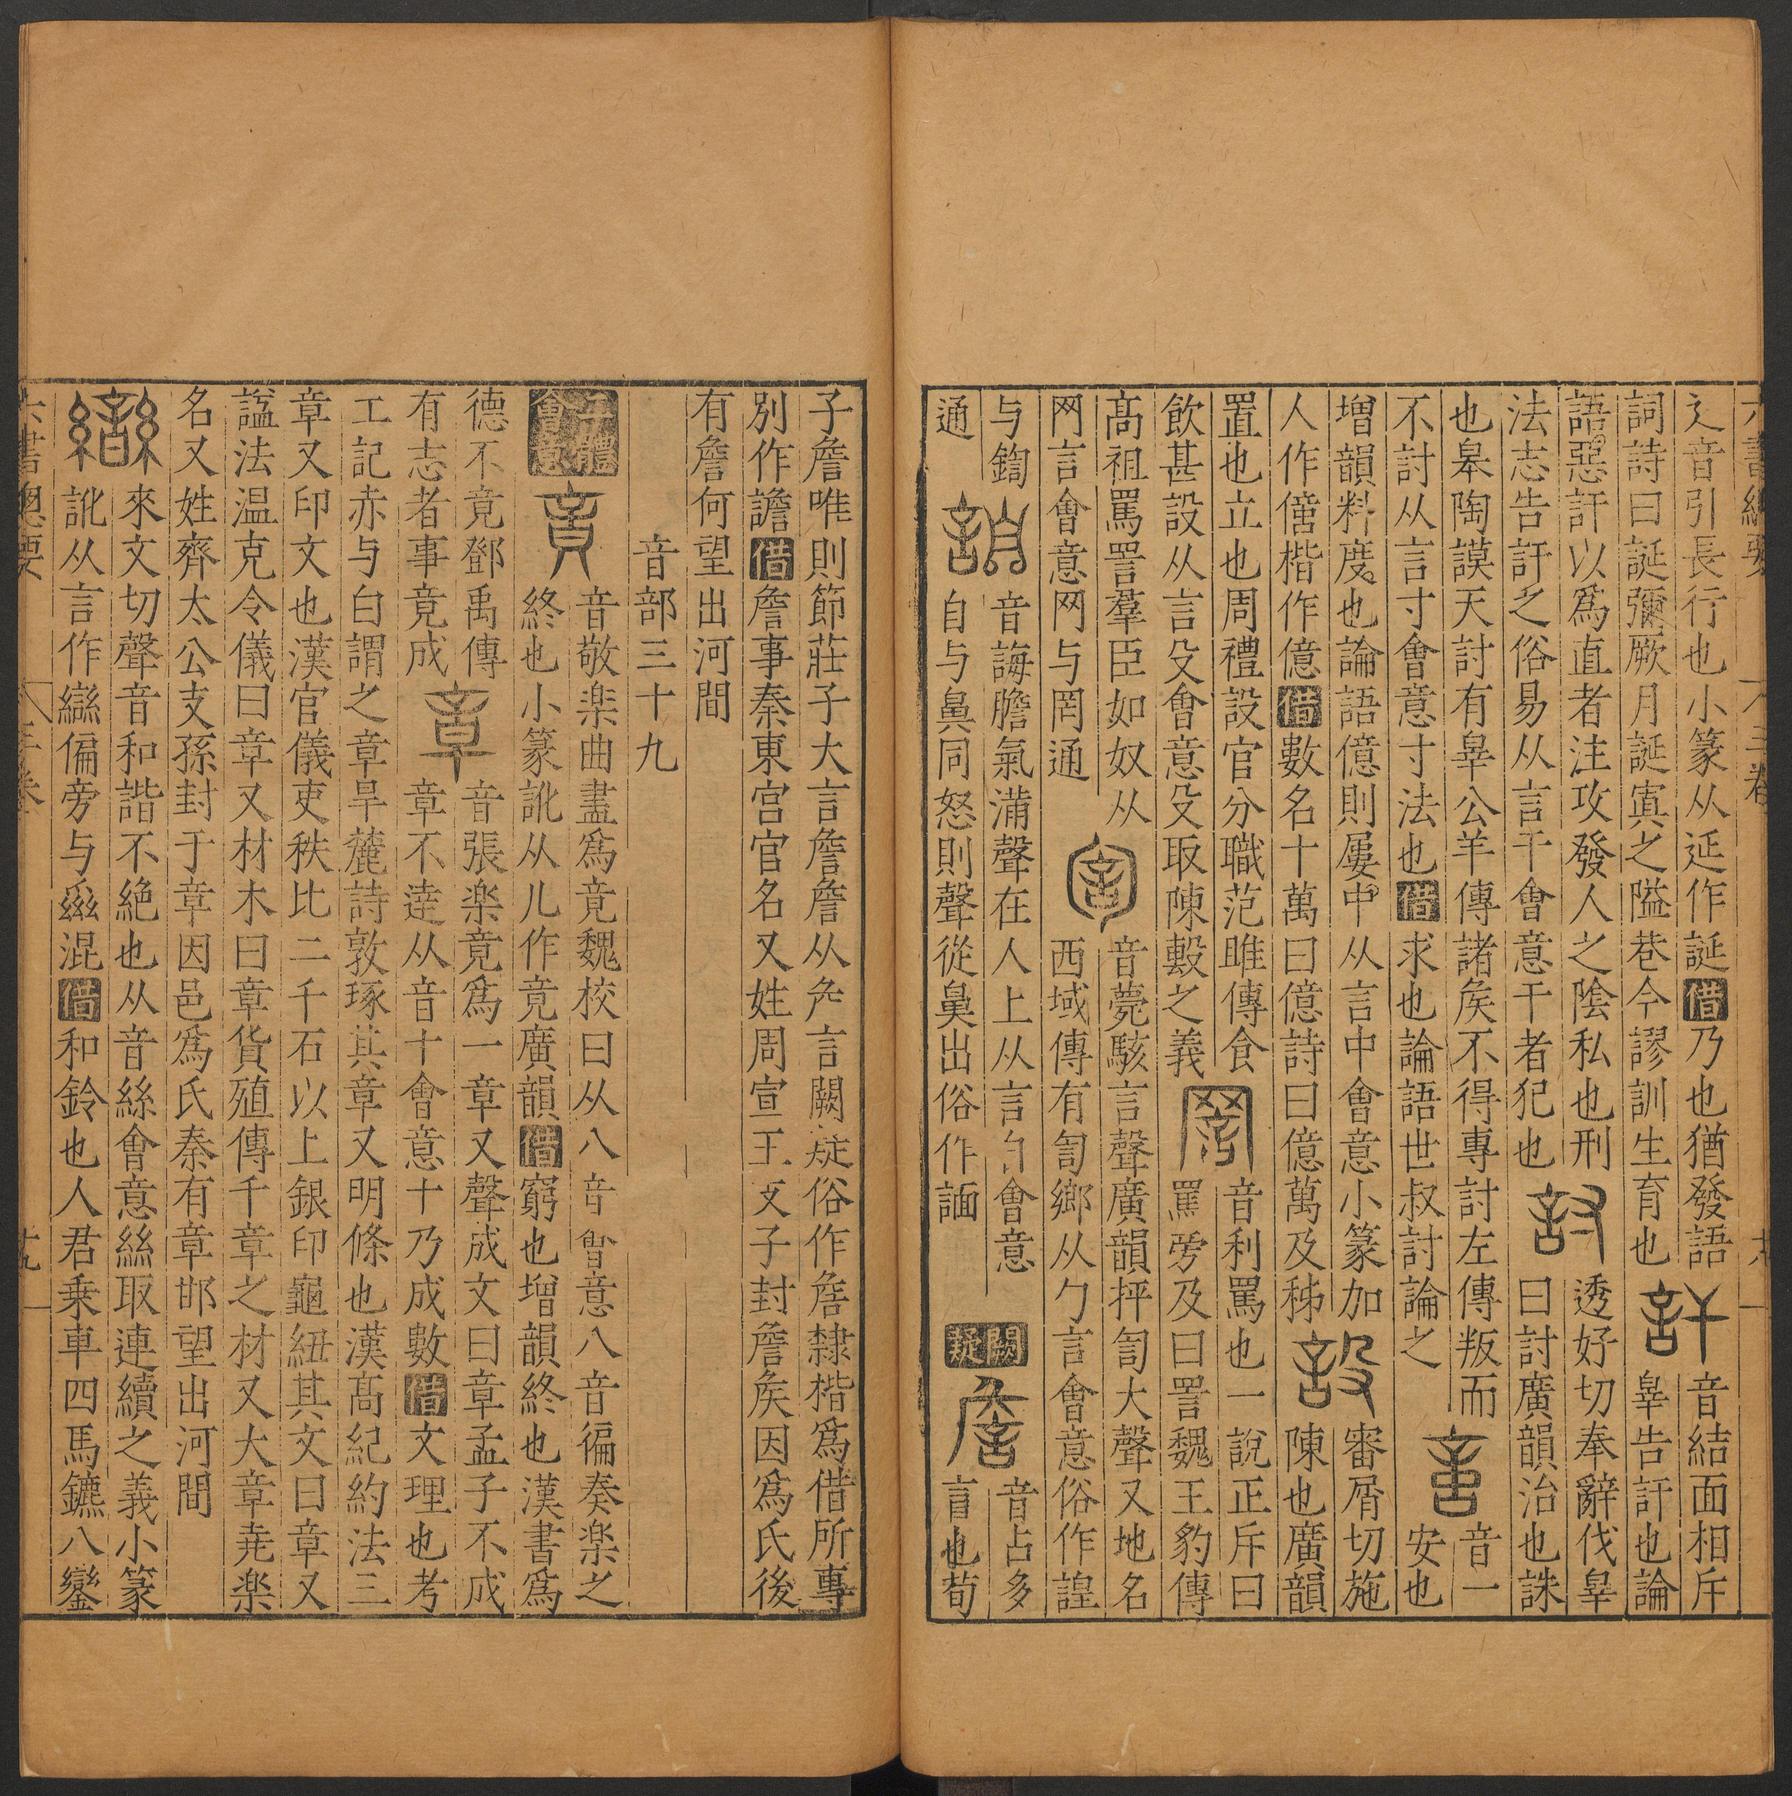 乀音引長行也小篆从㢟作誕借乃也猶發語
詞詩曰誕彌厥月誕寘之隘巷今謬訓生育也
訐音結面相斥辠告訐也論
語惡訐以爲直者注攻發人之陰私也刑
法志告訐之俗易从言干會意干者犯也
討透好切奉辭伐辠曰討廣韻治也誅
也皋陶謨天討有辠公羊傳諸矦不得專討左傳叛而
不討从言寸會意寸法也借求也論語世叔討論之
音一安也
增韻料度也論語億則屢中从言中會意小篆加
人作僮楷作億借數名十萬曰億詩曰億萬及秭
設審屑切施陳也廣韻
置也立也周禮設官分職范雎傳食
飲甚設从言殳會意殳取陳毄之義
音利罵也一說正斥曰罵旁及曰詈魏王豹傳
高祖罵詈羣臣如奴从
网言會意网与罔通
音薨駭言聲廣韻抨訇大聲又地名
西域傳有訇鄉从勹言會意俗作諻
与鍧通
音誨膽氣滿聲在人上从言自會意
自与鼻同怒則聲從鼻出俗作䛲
闕疑
詹音占多言也荀
子詹唯則節莊子大言詹詹从厃言闕疑俗作詹隸楷爲借所專
別作譫借詹事秦東宮官名又姓周宣王支子封詹矦因爲氏後
有詹何望出河間
音部三十九
五體會意
音敬楽曲盡爲竟魏校曰从八音會意八音徧奏楽之
終也小篆訛从儿作竟廣韻借窮也增韻終也漢書爲
德不竟鄧禹傳
有志者事竟成
章音張楽竟爲一章又聲成文曰章孟子不成
章不達从音十會意十乃成數借文理也考
工記赤与白謂之章旱麓詩敦琢其章又明條也漢高紀約法三
章又印文也漢官儀吏秩比二千石以上銀印龜紐其文曰章又
諡法温克令儀曰章又材木曰章貨殖傳千章之材又大章堯楽
名又姓齊太公支孫封于章因邑爲氏秦有章邯望出河間
來文切聲音和諧不絶也从音絲會意絲取連續之義小篆
訛从言作䜌偏旁与㘘混借和鈴也人君乗車四馬鑣八鑾